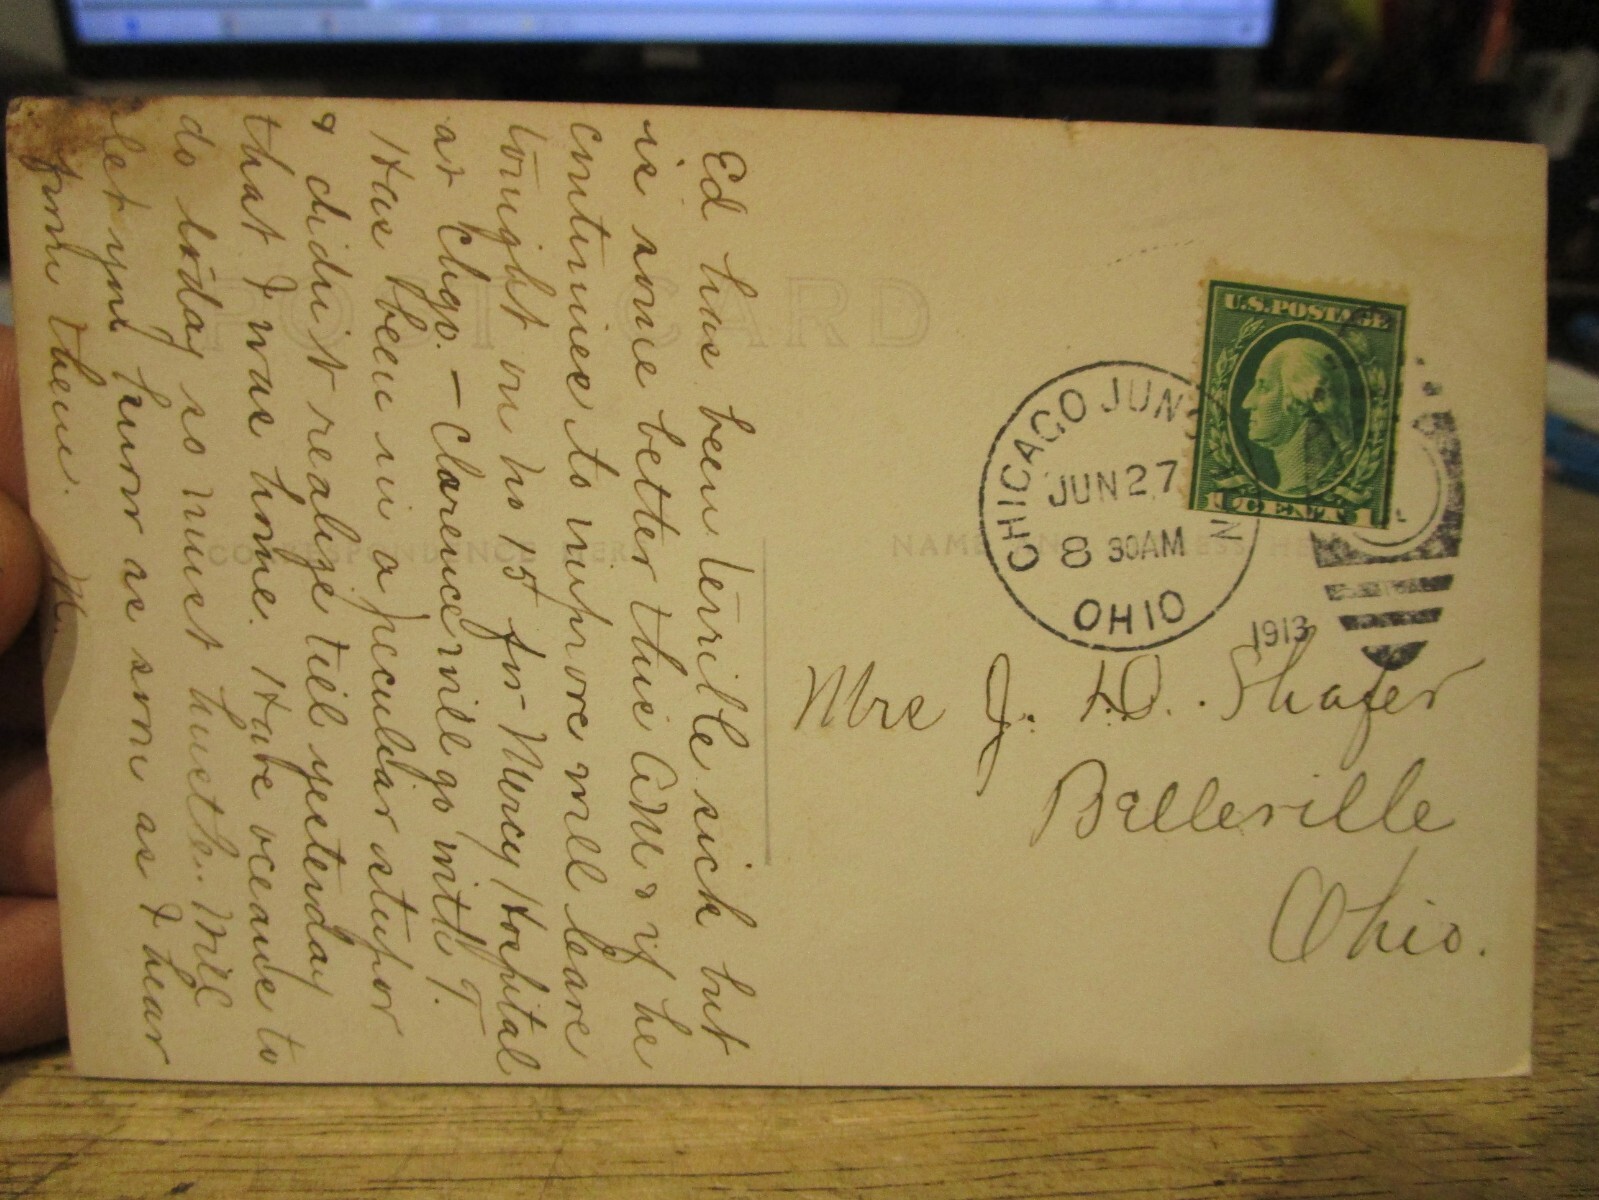 POST CARD
CORRESPONDENCE HERE
NAME AND ADDRESS HERE
U.S. POSTAGE
1 CENT 1
CHICAGO JUN
JUN 27
8 30AM
OHIO
1913
Mrs J. D. Shafer
Belleville
Ohio.
Ed has been terrible sick but
is some better this AM & if he
continues to improve will leave
tonight on No 15 for Mercy Hospital
at Chgo. – Clarence will go with T.
Has been in a peculiar stupor
& didn't realize till yesterday
that I was home. Have oceans to
do today so must hustle. Will
let you know as soon as I hear
from them. M.